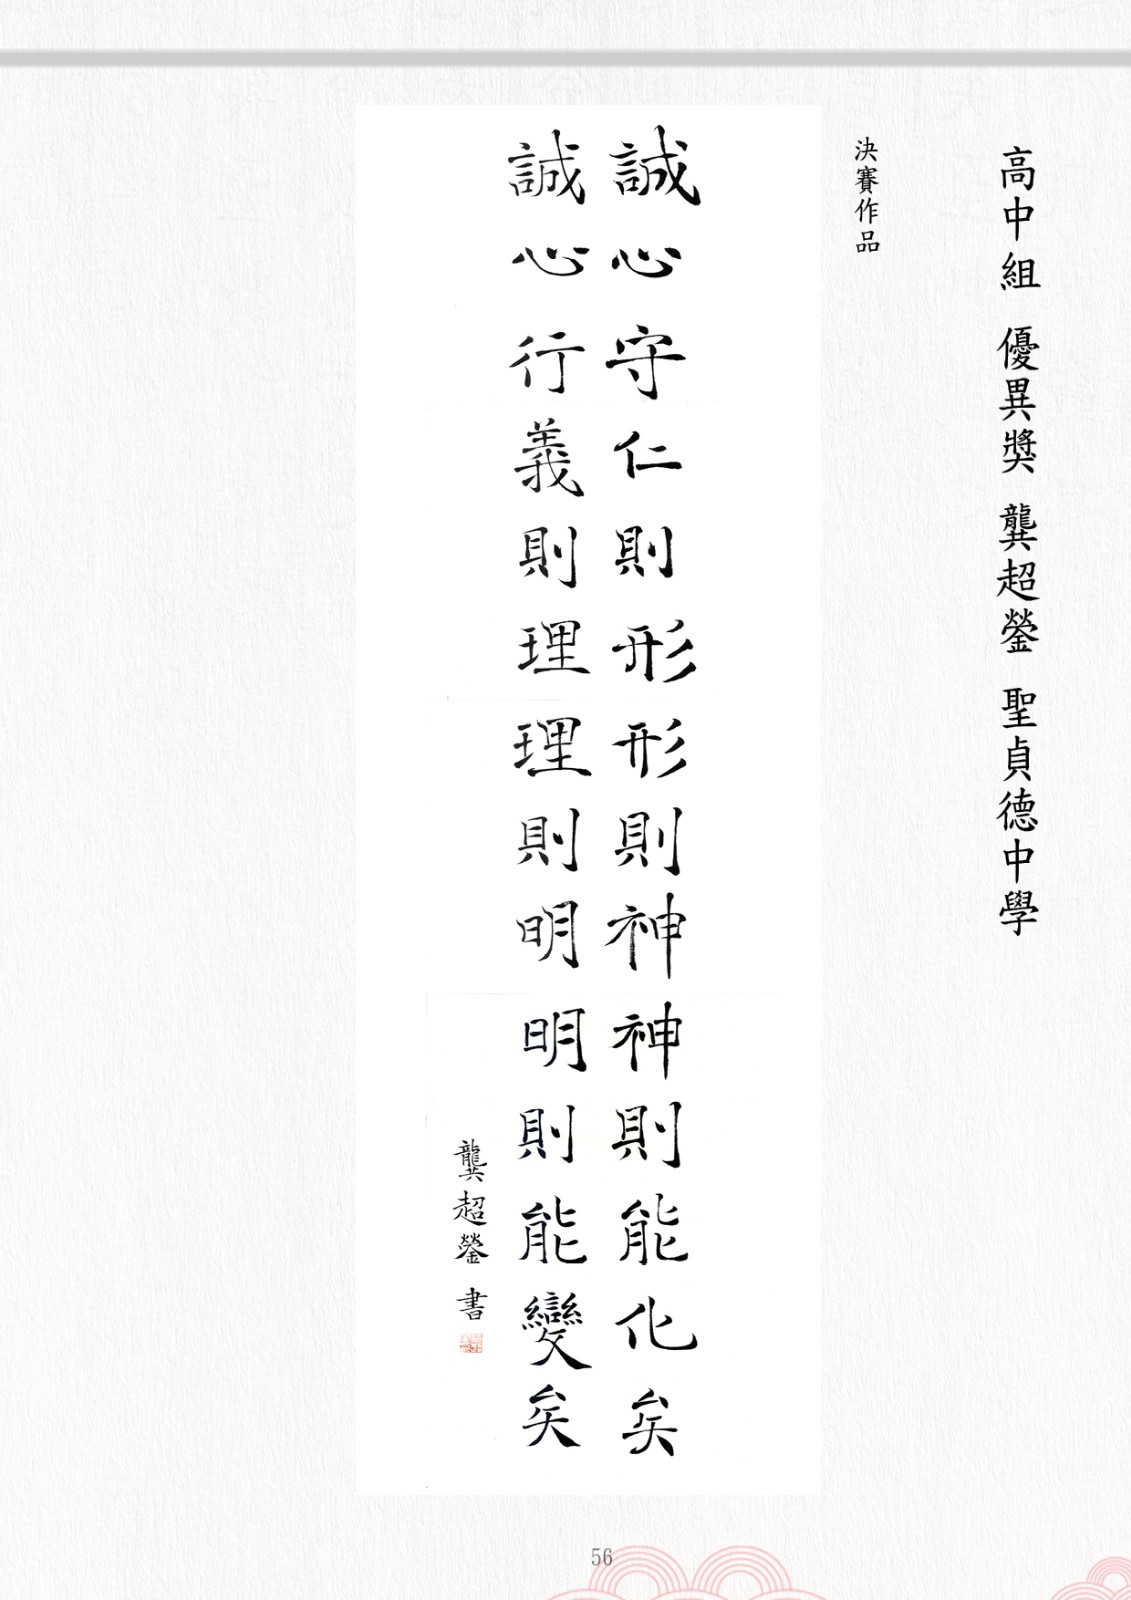 高中組 優異獎 龔超鎣 聖貞德中學
決賽作品
誠心守仁則形形則神神則能化矣
誠心行義則理理則明明則能變矣
龔超鎣書
56